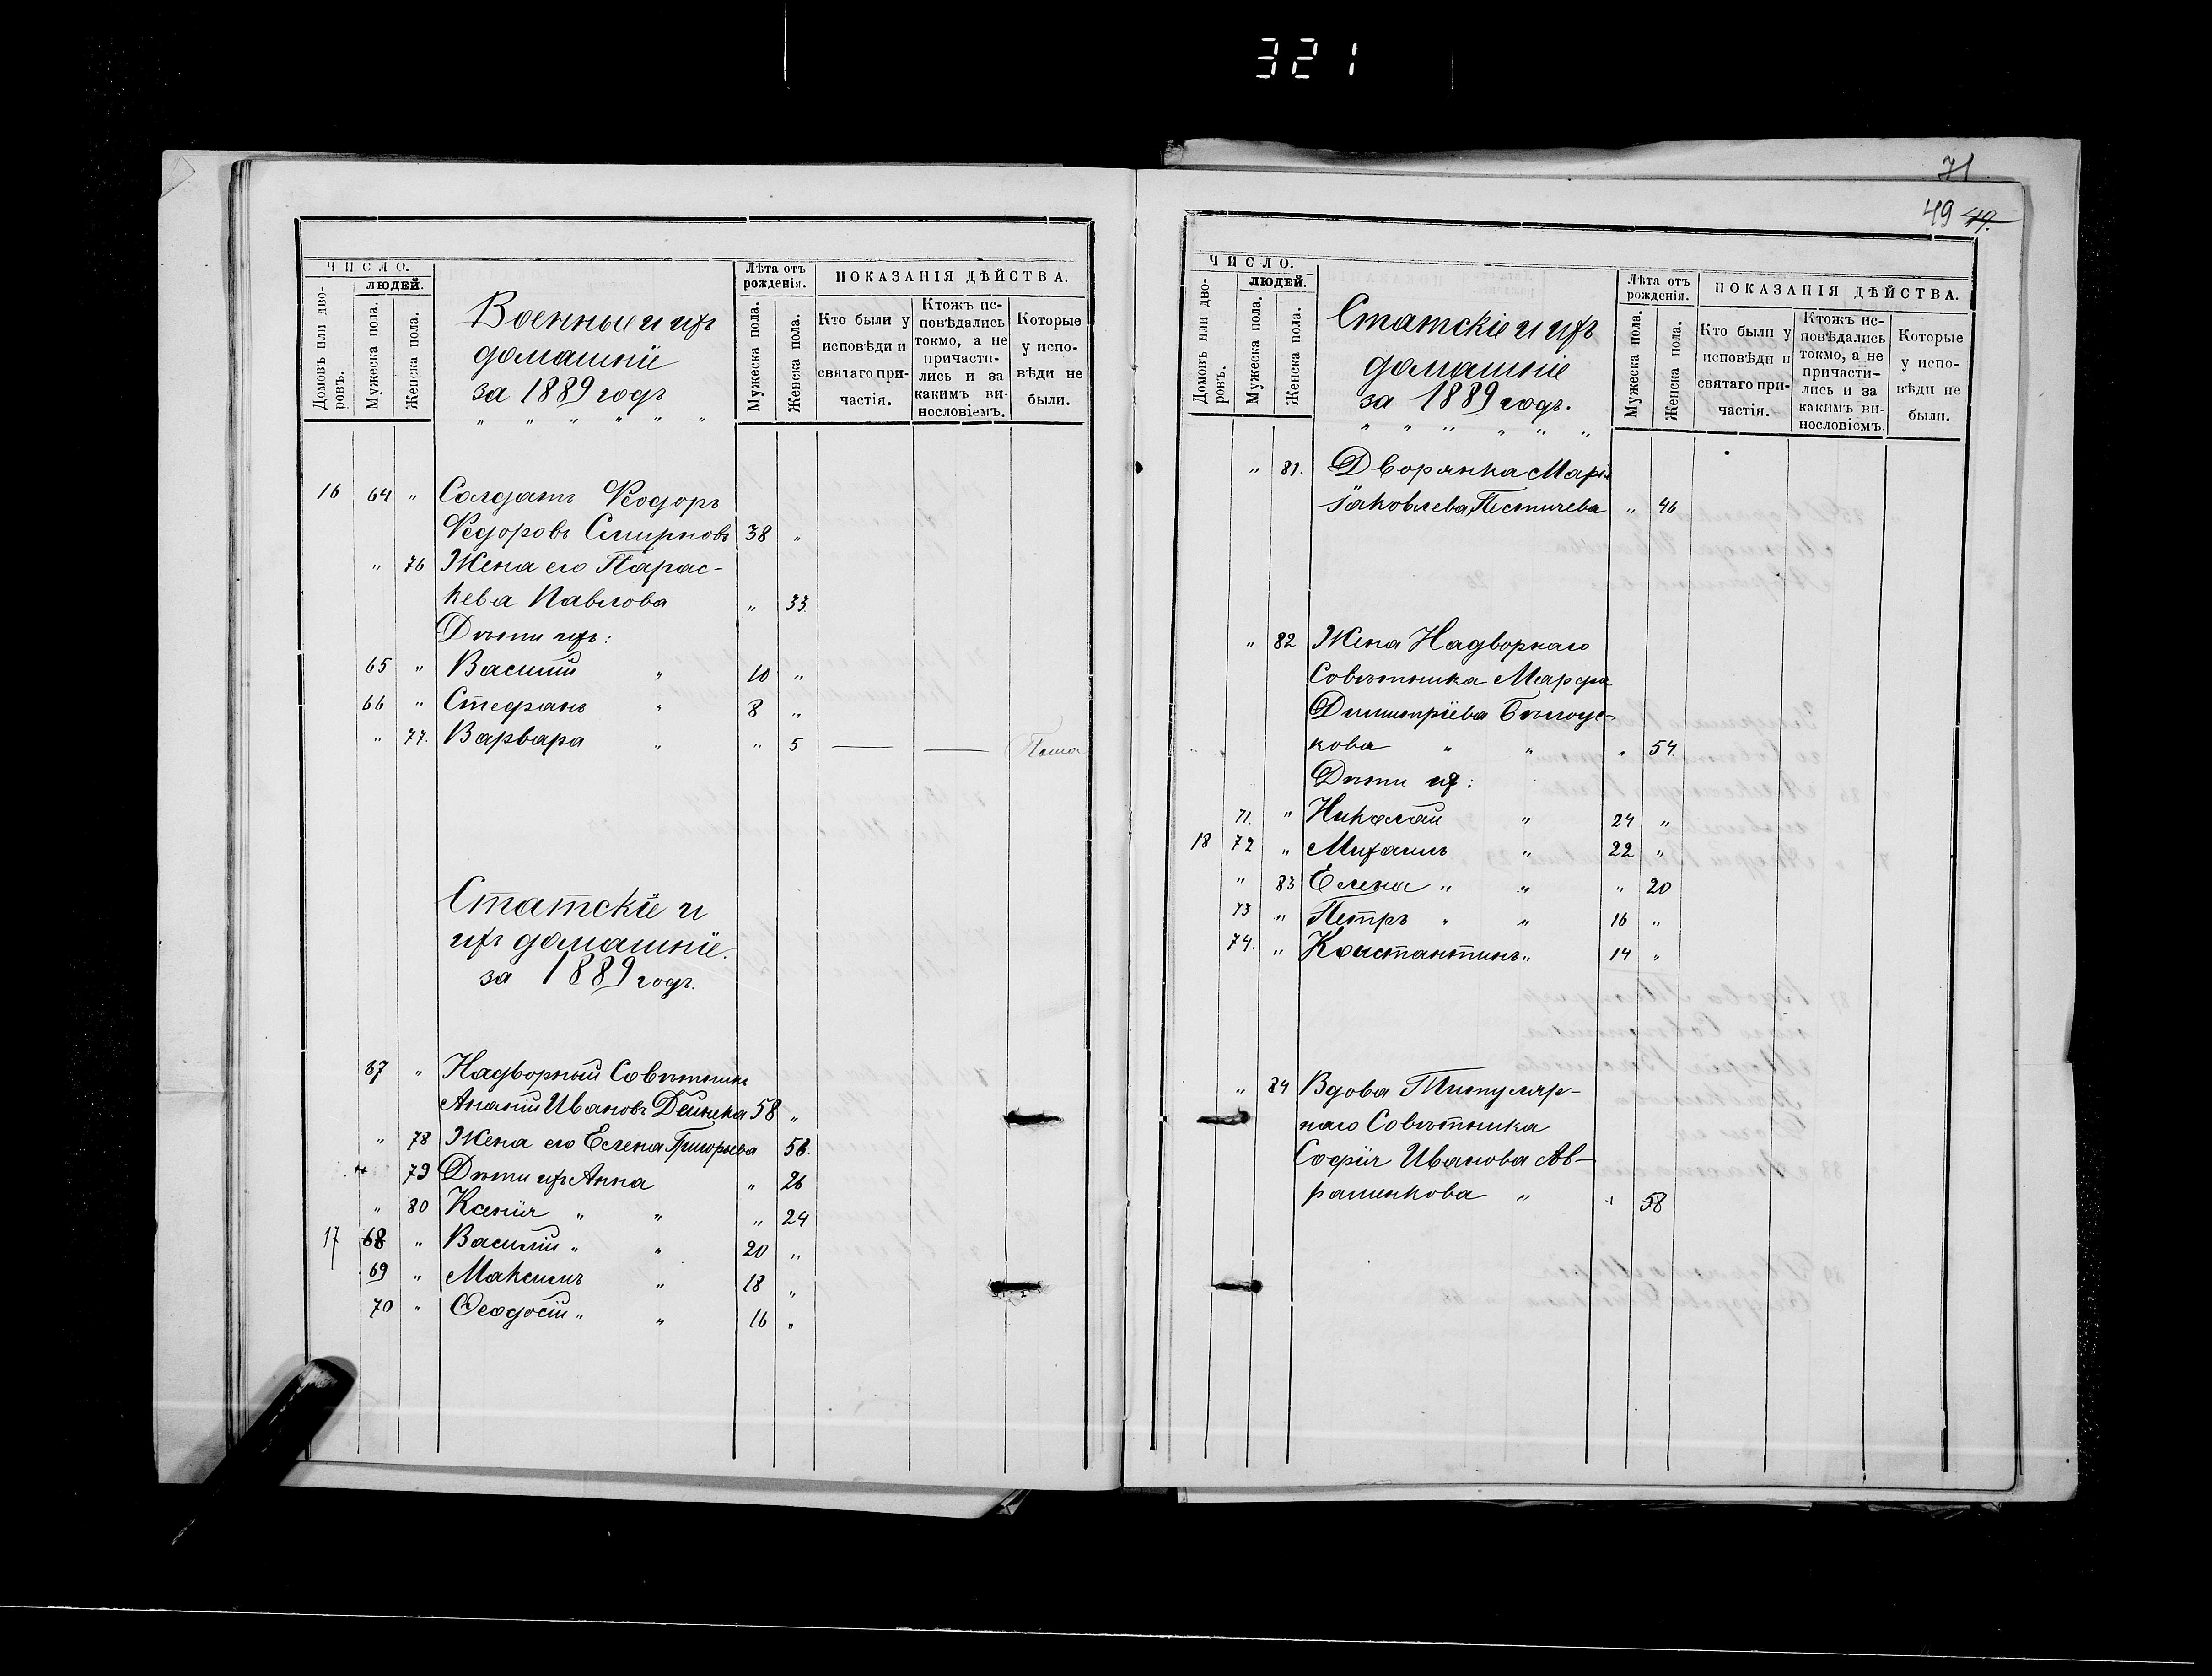 321
ЧИСЛО.
Домовъ или дворовъ.
ЛЮДЕЙ.
Мужеска пола.
Женска пола.
Военные и ихъ
домашнiе
за 1889 годъ
Лѣта отъ рожденія.
Мужеска пола.
Женска пола.
ПОКАЗАНІЯ ДѢЙСТВА.
Кто были у исповѣди и святаго причастія.
Ктожъ исповѣдались токмо, а не причастились и за какимъ винословіемъ.
Которые у исповѣди не были.
16 64 " Солдатъ Ѳеодоръ
Ѳедоровъ Смирновъ 38 "
" 76 Жена его Парас-
кева Павлова " 33.
Дѣти ихъ:
65 " Василій " 10 "
66 " Стефанъ " 8 "
" 77. Варвара " " 5
Статскіе и
ихъ домашніе.
за 1889 годъ.
67 " Надворный Совѣтникъ
Ананій Ивановъ Дейнека 58 "
" 78 Жена его Елена Григорьева 56.
" 79 Дѣти ихъ Анна " 26
" 80 Ксенія " " " 24
17 68 " Василій " " 20 "
69 " Максимъ " 18 "
70 " Ѳеодосій " " 16 "
71
49 49.
ЧИСЛО.
Домовъ или дворовъ.
ЛЮДЕЙ.
Мужеска пола.
Женска пола.
Статскіе и ихъ
домашніе
за 1889 годъ.
Лѣта отъ рожденія.
Мужеска пола.
Женска пола.
ПОКАЗАНІЯ ДѢЙСТВА.
Кто были у исповѣди и святаго причастія.
Ктожъ исповѣдались токмо, а не причастились и за какимъ винословіемъ.
Которые у исповѣди не были.
" 81. Дворянка Марія
Іаковлева Пестичева " 46
" 82 Жена Надворнаго
Совѣтника Марфа
Димитріева Бѣлоус-
кова " " " 54.
Дѣти их:
71. " Николай " 24 "
18 72 " Михаилъ " 22 "
" 83 Елена " " " 20
73 " Петръ " " 16 "
74. " Константинъ " 14 "
" 84 Вдова Титуляр-
наго Совѣтника
Софія Иванова Ав-
раменкова " " 58